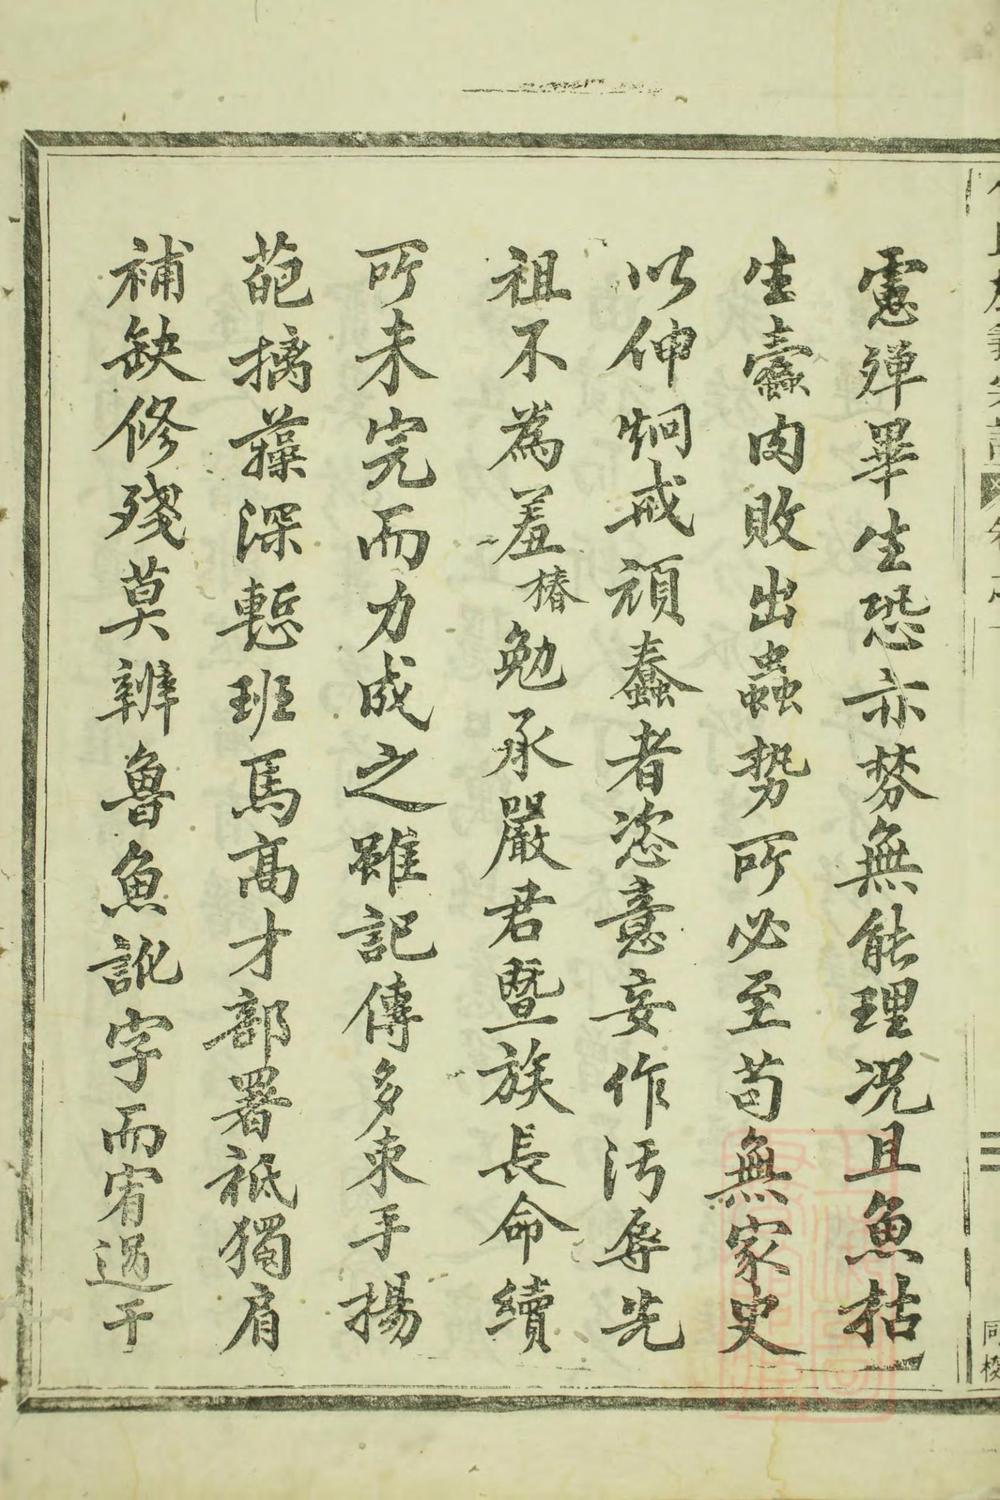 慮殫畢生恐亦棼無能理况且魚枯
生蠹肉敗出蟲勢所必至苟無家史
以伸炯戒頑蠢者恣意妄作污辱先
祖不為羞椿勉承嚴君暨族長命續
所未完而力成之雖記傳多束手揚
葩摛藻深慙班馬高才部署祗獨肩
補缺修殘莫辨魯魚訛字而宥過干